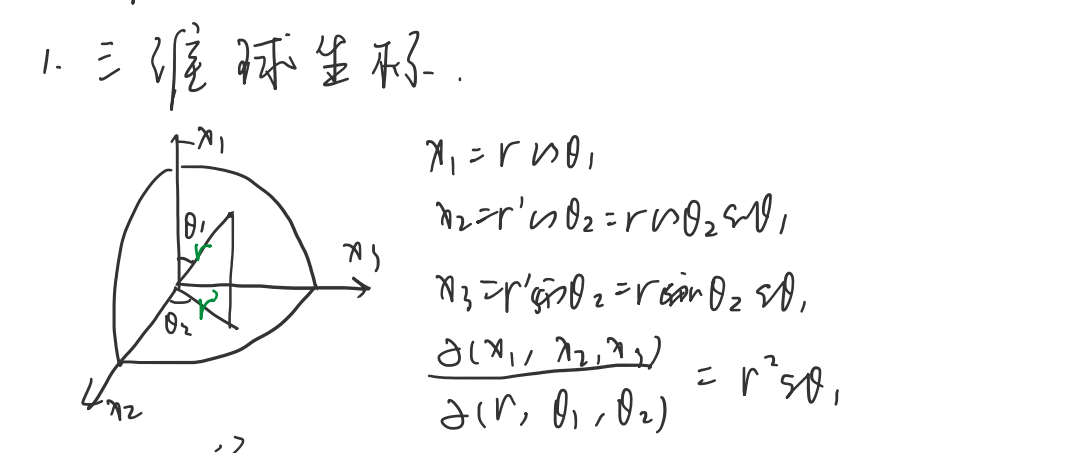 1. 三维球坐标.
x₁
θ₁
r
x₃
r'
θ₂
x₂
x₁ = r cosθ₁
x₂ = r' cosθ₂ = r cosθ₂ sinθ₁
x₃ = r' sinθ₂ = r sinθ₂ sinθ₁
∂(x₁, x₂, x₃) / ∂(r, θ₁, θ₂) = r² sinθ₁